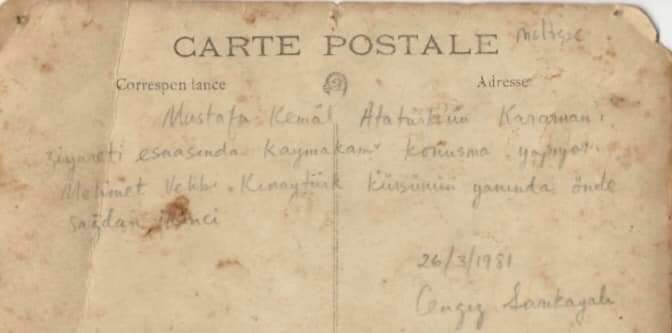 CARTE POSTALE
Correspondance Adresse
Mustafa Kemal Atatürk'ün Karaman'ı
ziyareti esnasında kaymakam konuşma yapıyor.
Mehmet Vehbi Kınaytürk kürsünün yanında önde
sağdan ikinci
26/3/1981
Cengiz Sarıkayalı